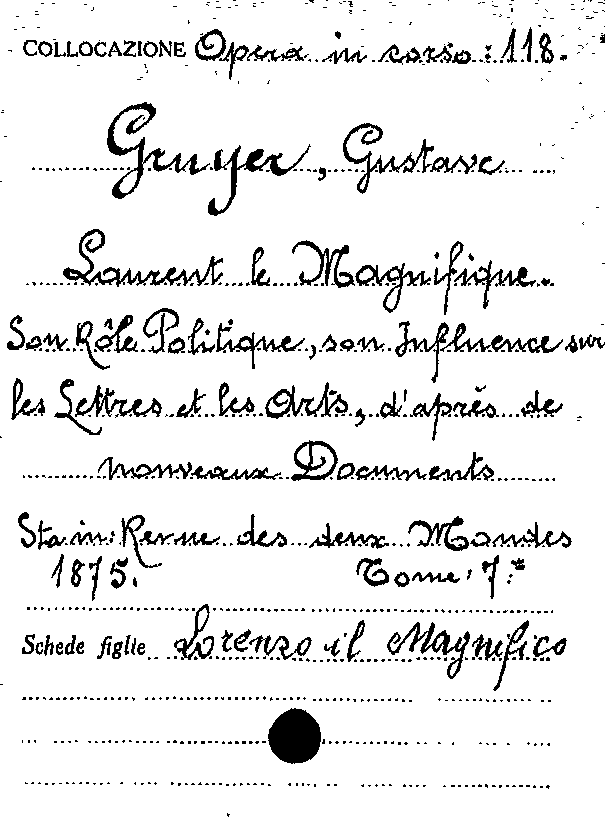 COLLOCAZIONE Opera in corso: 118.
Gruyer, Gustave
Laurent le Magnifique.
Son Rôle Politique, son Influence sur
les Lettres et les Arts, d'après de
nouveaux Documents
Sta in: Revue des deux Mondes
1875. Tome: 7:*
Schede figlie Lorenzo il Magnifico